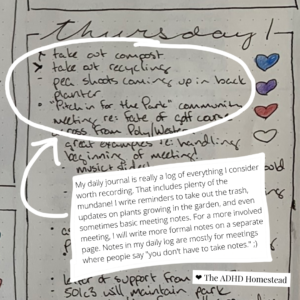 thursday 1
take out compost
> take out recycling
pea shoots coming up in back
planter
"Pitch in for the Park" community
meeting re: fate of
across from Poly/Water
great examples re: handling
beginning of meeting!
My daily journal is really a log of everything I consider
worth recording. That includes plenty of the
mundane! I write reminders to take out the trash,
updates on plants growing in the garden, and even
sometimes basic meeting notes. For a more involved
meeting, I will write more formal notes on a separate
page. Notes in my daily log are mostly for meetings
where people say "you don't have to take notes." ;)
letter of support from
will maintain park.
❤ The ADHD Homestead